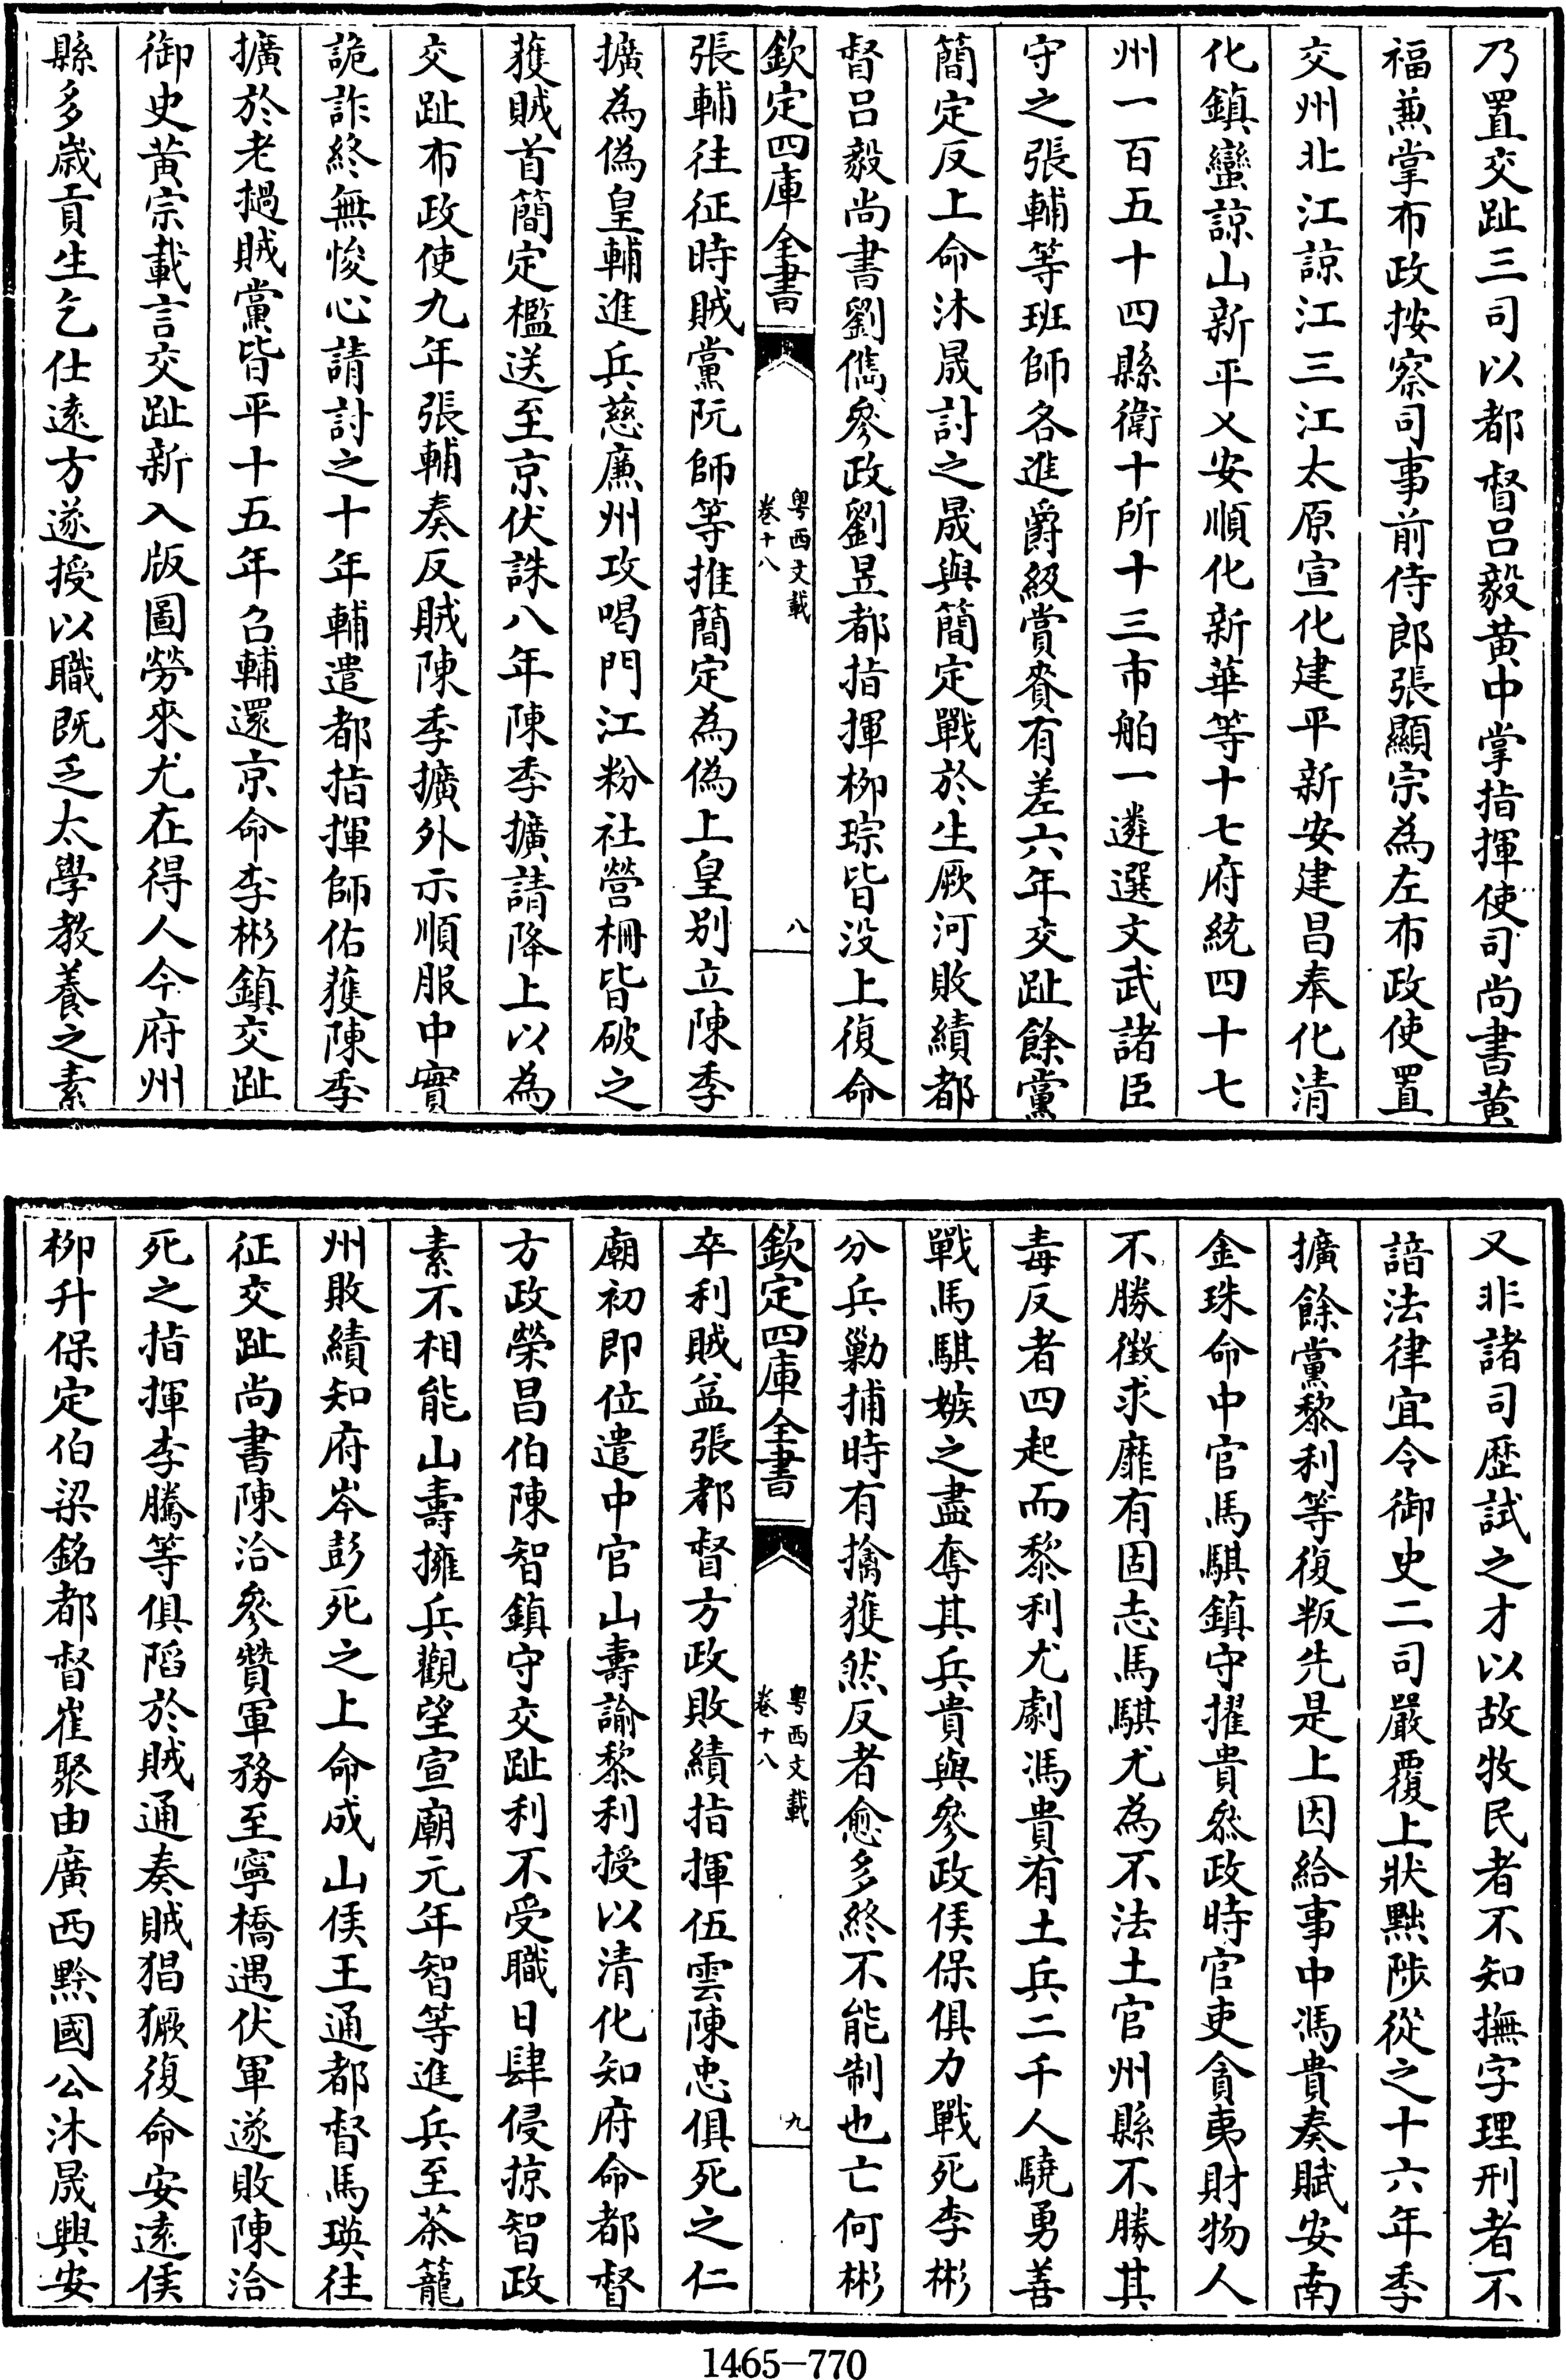 乃置交趾三司以都督吕毅黄中掌指揮使司尚書黄
福兼掌布政按察司事前侍郎張顯宗為左布政使置
交州北江諒江三江太原宣化建平新安建昌奉化清
化鎮蠻諒山新平乂安順化新華等十七府統四十七
州一百五十四縣衛十所十三市舶一遴選文武諸臣
守之張輔等班師各進爵級賞賚有差六年交趾餘黨
簡定反上命沐晟討之晟與簡定戰於生厥河敗績都
督吕毅尚書劉儁參政劉昱都指揮栁琮皆没上復命
欽定四庫全書
粤西文載
卷十八
八
張輔往征時賊黨阮師等推簡定為偽上皇别立陳季
擴為偽皇輔進兵慈廉州攻喝門江粉社營柵皆破之
獲賊首簡定檻送至京伏誅八年陳季擴請降上以為
交趾布政使九年張輔奏反賊陳季擴外示順服中實
詭詐終無悛心請討之十年輔遣都指揮師佑獲陳季
擴於老撾賊黨皆平十五年召輔還京命李彬鎮交趾
御史黄宗載言交趾新入版圖勞來尤在得人今府州
縣多嵗貢生乞仕逺方遂授以職既乏太學教養之素
又非諸司歴試之才以故牧民者不知撫字理刑者不
諳法律宜令御史二司嚴覆上狀黜陟從之十六年季
擴餘黨黎利等復叛先是上因給事中馮貴奏賦安南
金珠命中官馬騏鎮守擢貴叅政時官吏貪夷財物人
不勝徴求靡有固志馬騏尤為不法土官州縣不勝其
毒反者四起而黎利尤劇馮貴有土兵二千人驍勇善
戰馬騏嫉之盡奪其兵貴與參政侯保俱力戰死李彬
分兵勦捕時有擒獲然反者愈多終不能制也亡何彬
欽定四庫全書
粤西文載
卷十八
九
卒利賊益張都督方政敗績指揮伍雲陳忠俱死之仁
廟初即位遣中官山壽諭黎利授以清化知府命都督
方政榮昌伯陳智鎮守交趾利不受職日肆侵掠智政
素不相能山壽擁兵觀望宣廟元年智等進兵至茶籠
州敗績知府岑彭死之上命成山侯王通都督馬瑛往
征交趾尚書陳洽參贊軍務至寧橋遇伏軍遂敗陳洽
死之指揮李騰等俱陷於賊通奏賊猖獗復命安遠侯
栁升保定伯梁銘都督崔聚由廣西黔國公沐晟興安
1465-770